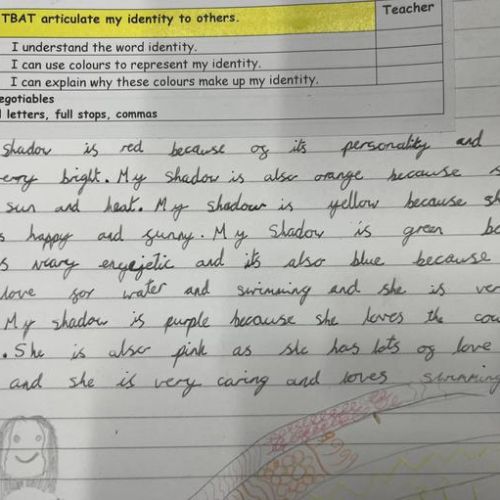 TBAT articulate my identity to others.
Teacher
I understand the word identity.
I can use colours to represent my identity.
I can explain why these colours make up my identity.
egotiables
l letters, full stops, commas
Shadow is red because of its personality and
ery bright. My shadow is also orange because s
sun and heat. My shadow is yellow because sh
s happy and funny. My shadow is green be
s veary engejetic and its also blue because
love for water and swimming and she is ver
My shadow is purple because she loves the cou
. She is also pink as she has lots of love
and she is very caring and loves swimming